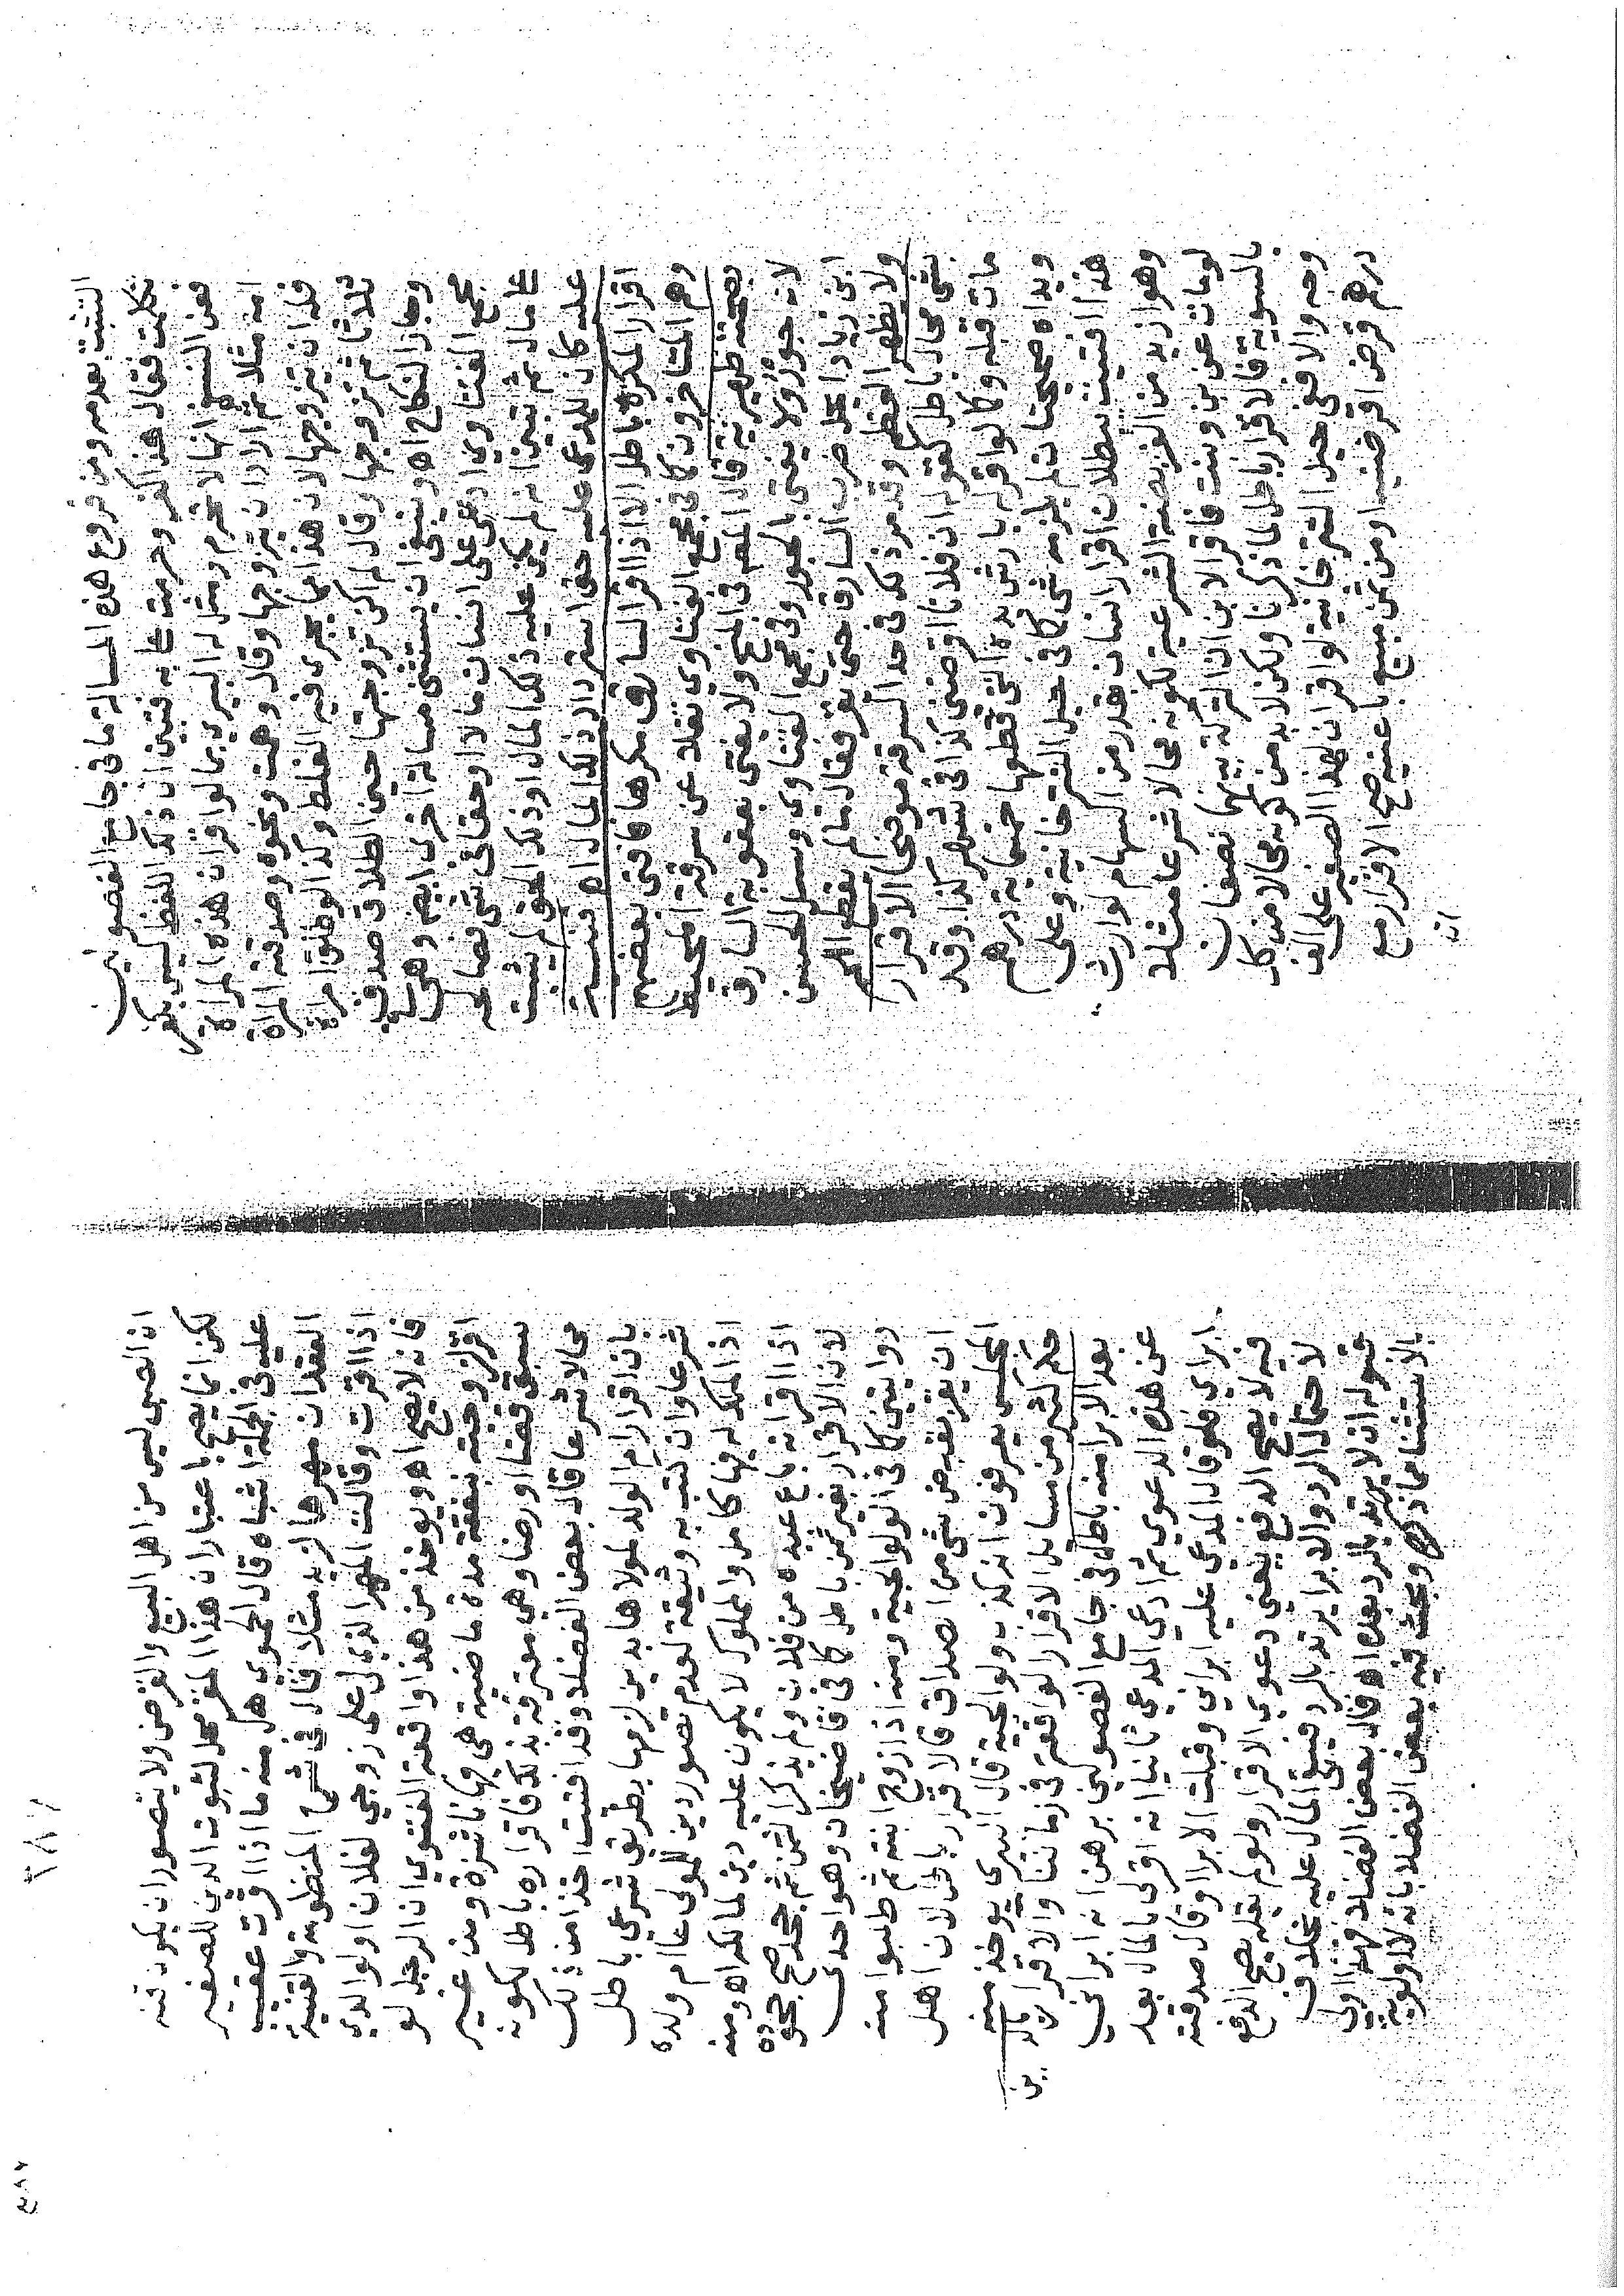 التثبت بعدمه ومن فروع هذه المسالة ما في جامع الفصولين
تكلمت فقال هذا كفر وحرمت علي به فتبين ان ذلك اللفظ ليس بكفر
فعن النسفي انها لا تحرم ومثله البيري بما لو اقر ان هذه المراة
امه مثلا ثم اراد ان يتزوجها وقال وهمت ونحوه وصدقته المراة
فله ان يتزوجها لان هذا مما يجري فيه الغلط وكذا لو طلق امراته
ثلاثا ثم تزوجها وقال لم اكن تزوجتها حين الطلاق صدق
وجاز النكاح اه وينبغي ان يستثنى مسالة اخرى ايضا وهي
مجمع الفتاوي ادعى على انسان مالا او حقا في شي فصالحه
على مال ثم تبين انه لم يكن عليه ذلك المال او ذلك الحق لم يثبت
عليه كان للمدعى عليه حق استرداد ذلك المال اه تنبيه
اقرار المكره باطل الا اذا اقر السارق مكرها فافتى بعضهم
وهم المتاخرون كما في مجمع الفتاوي نقلا عن سرقة المحيط
بصحته ظهيرية قال المص في المنح ولا يفتى بعقوبة السارق
لانه جور ولا يفتى بالجور وفي مجمع الفتاوي وسئل الحسن
ابن زياد ايحل ضرب السارق حتى يقر فقال ما لم يقطع اللحم
ولا يظهر العظم وقد مر ذكره في حد السرقة موضحا الاقرار
بشي محال باطل كقوله ان فلانا اقرضني كذا في شهر كذا وقد
مات قبله وكما لو اقر له بارش يده التي قطعها خمسماية درهم
ويداه صحيحتان لم يلزمه شي كما في حيل التترخانية وعلى
هذا افتيت ببطلان اقرار انسان بقدر من السهام لوارث
وهو ازيد من الفريضة الشرعية لكونه محالا شرعا مثلا
لو مات عن ابن وبنت فاقر الابن ان التركة بينهما نصفان
بالسوية قالاقرار باطل لما ذكرنا ولكن لا بد من كونه محالا من كل
وجه والا ففي حيل التترخانية لو اقر ان لهذا الصغير على الف
درهم قرض اقرضنيه او من ثمن مبيع باعنيه صح الاقرار مع
ان الصبي ليس من اهل البيع والقرض ولا يتصور ان يكون منه
لكن انما يصح باعتبار ان هذا المقر محل لثبوت الدين للصغير
عليه في الجملة اشباه قال الحموي هل منه ما اذا اقرت عقيب
العقد ان مهرها لزيد مثلا قال في شرح المنظومة والقنية
اذا اقرت وقالت المهر الذي لي على زوجي لفلان او لوالدي
فانه لا يصح اه ويوخذ من هذا واقعة الفتوي ان الرجل لو
اقر لزوجته بنفقة مدة ماضية هي فيها ناشزة ومن غير
سبق قضا او رضا وهي معترفة بذلك فاقراره باطل لكونه
محالا شرعا قال بعض الفضلا وقد افتيت اخذا من ذلك
بان اقرار ام الولد لمولاها بدين لزمها بطريق شرعي باطل
شرعا وان كتب به وثيقة لعدم تصور دين للمولى على ام ولده
اذ الملك له فيها كامل والمملوك لا يكون عليه دين لمالكه اه ومنه
اذا اقر انه باع عبده من فلان ولم يذكر الثمن ثم جحد صح جحوده
لان الاقرار بغير ثمن باطل كما في قاضيخان وهو احدى
روايتين كما في الولوالجية ومنه اذا زوج ابنته ثم طلبوا منه
ان يقر بقبض شي من الصداق فالاقرار باطل لان اهل
المجلس يعرفون انه كذب ولوالجية قال البيري يوخذ منه
حكم كثير من مسايل الاقرار الواقعة في زماننا والاقرار بالدين
بعد الابرا منه باطل في جامع الفصولين برهن انه ابراني
عن هذه الدعوي ثم ادعى المدعي ثانيا انه اقر لي بالمال بعد
ابراي فلو قال المدعى عليه ابراني وقبلت الابرا وقال صدقته
فيه لا يصح الدفع يعني دعوى الاقرار ولو لم يقله يصح الدفع
لاحتمال الرد والابرا يرتد بالرد فيبقى المال عليه بخلاف
قبوله اذ لا يرتد بالرد بعده اه قال بعض الفضلا فهذا اولى
بالاستثنا مما ذكر وبحث فيه بعض الفضلا بانه لا اولوية